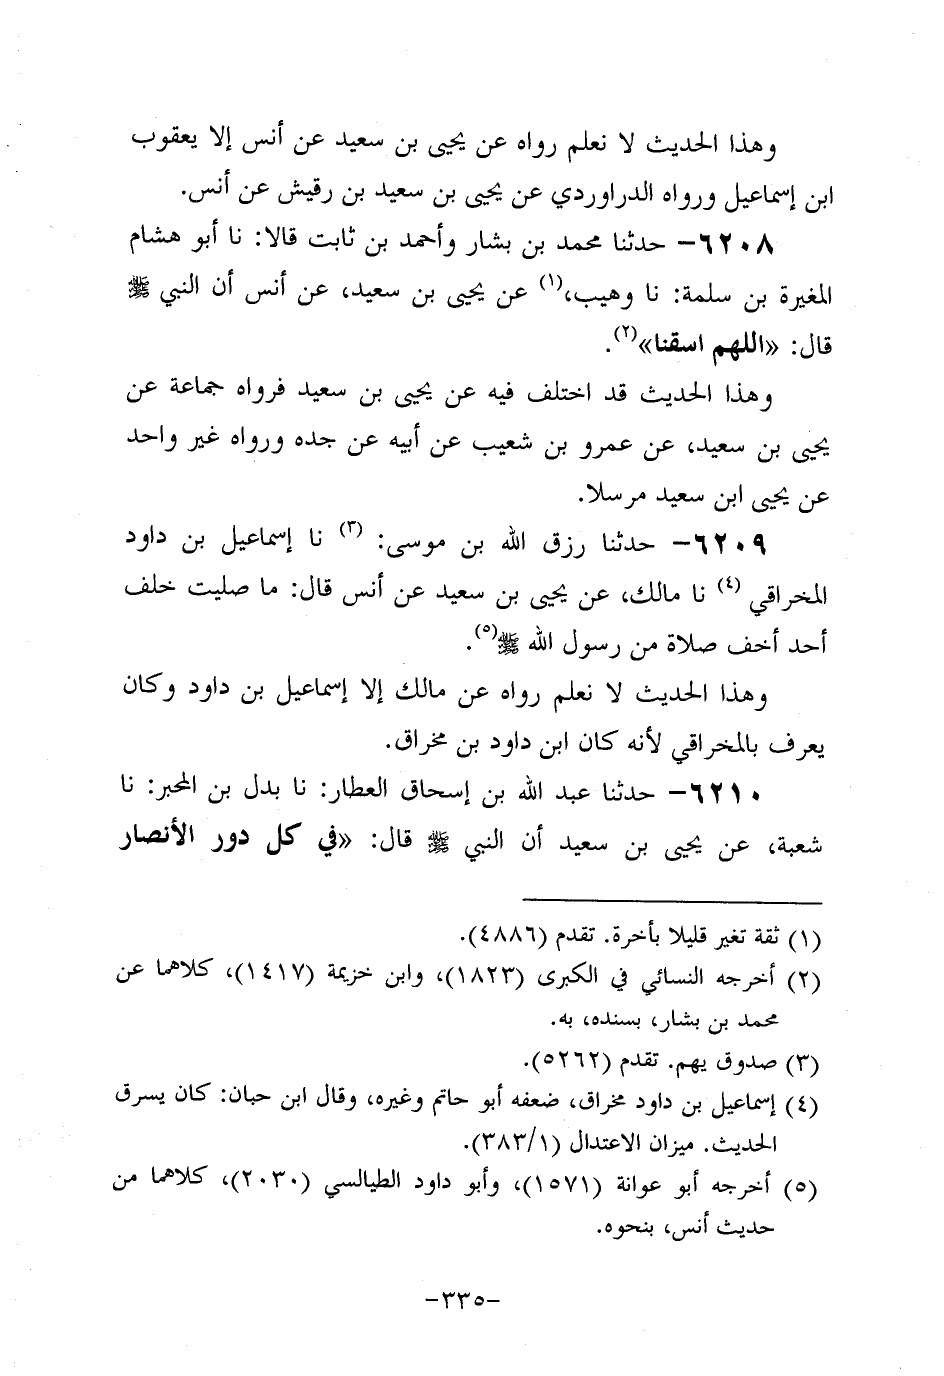 وهذا الحديث لا نعلم رواه عن يحيى بن سعيد عن أنس إلا يعقوب
ابن إسماعيل ورواه الدراوردي عن يحيى بن سعيد بن رقيش عن أنس.
٦٢٠٨- حدثنا محمد بن بشار وأحمد بن ثابت قالا: نا أبو هشام
المغيرة بن سلمة: نا وهيب،(١) عن يحيى بن سعيد، عن أنس أن النبي ﷺ
قال: «اللهم اسقنا»(٢).
وهذا الحديث قد اختلف فيه عن يحيى بن سعيد فرواه جماعة عن
يحيى بن سعيد، عن عمرو بن شعيب عن أبيه عن جده ورواه غير واحد
عن يحيى ابن سعيد مرسلا.
٦٢٠٩- حدثنا رزق الله بن موسى: (٣) نا إسماعيل بن داود
المخراقي (٤) نا مالك، عن يحيى بن سعيد عن أنس قال: ما صليت خلف
أحد أخف صلاة من رسول الله ﷺ(٥).
وهذا الحديث لا نعلم رواه عن مالك إلا إسماعيل بن داود وكان
يعرف بالمخراقي لأنه كان ابن داود بن مخراق.
٦٢١٠- حدثنا عبد الله بن إسحاق العطار: نا بدل بن المحبر: نا
شعبة، عن يحيى بن سعيد أن النبي ﷺ قال: «في كل دور الأنصار
(١) ثقة تغير قليلا بأخرة. تقدم (٤٨٨٦).
(٢) أخرجه النسائي في الكبرى (١٨٢٣)، وابن خزيمة (١٤١٧)، كلاهما عن
محمد بن بشار، بسنده، به.
(٣) صدوق يهم. تقدم (٥٢٦٢).
(٤) إسماعيل بن داود مخراق، ضعفه أبو حاتم وغيره، وقال ابن حبان: كان يسرق
الحديث. ميزان الاعتدال (٣٨٣/١).
(٥) أخرجه أبو عوانة (١٥٧١)، وأبو داود الطيالسي (٢٠٣٠)، كلاهما من
حديث أنس، بنحوه.
-٣٣٥-